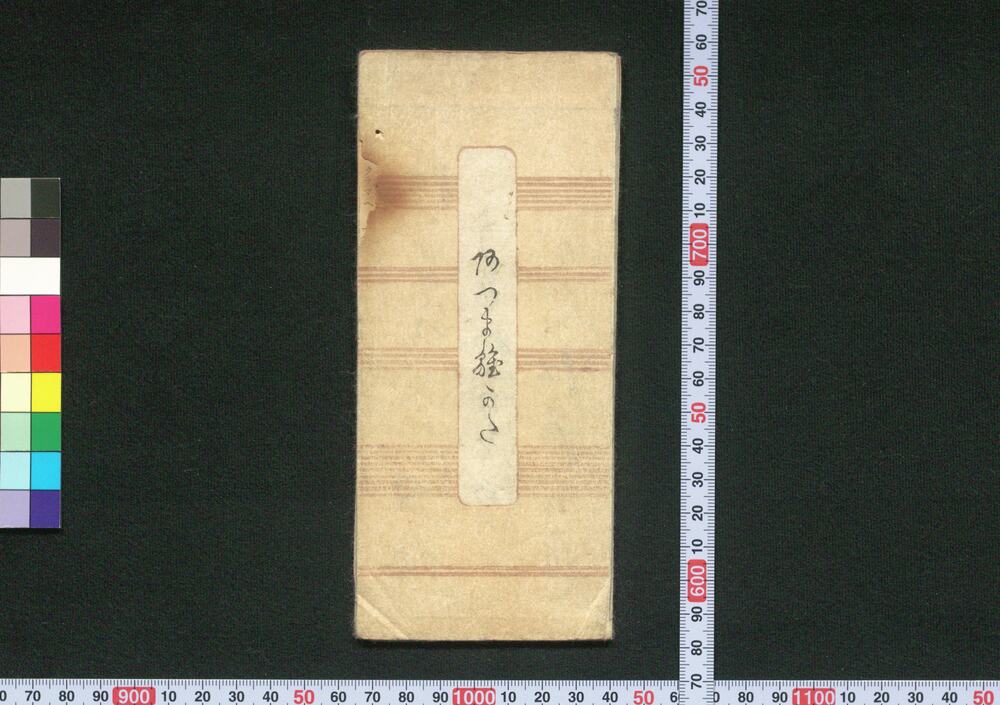 阿つま雛かた
70
60
50
40
30
20
10
700
90
80
70
60
50
40
30
20
10
600
90
80
70
0 70 80 90 900 10 20 30 40 50 60 70 80 90 1000 10 20 30 40 50 6 80 90 1100 10 20 30 40 50